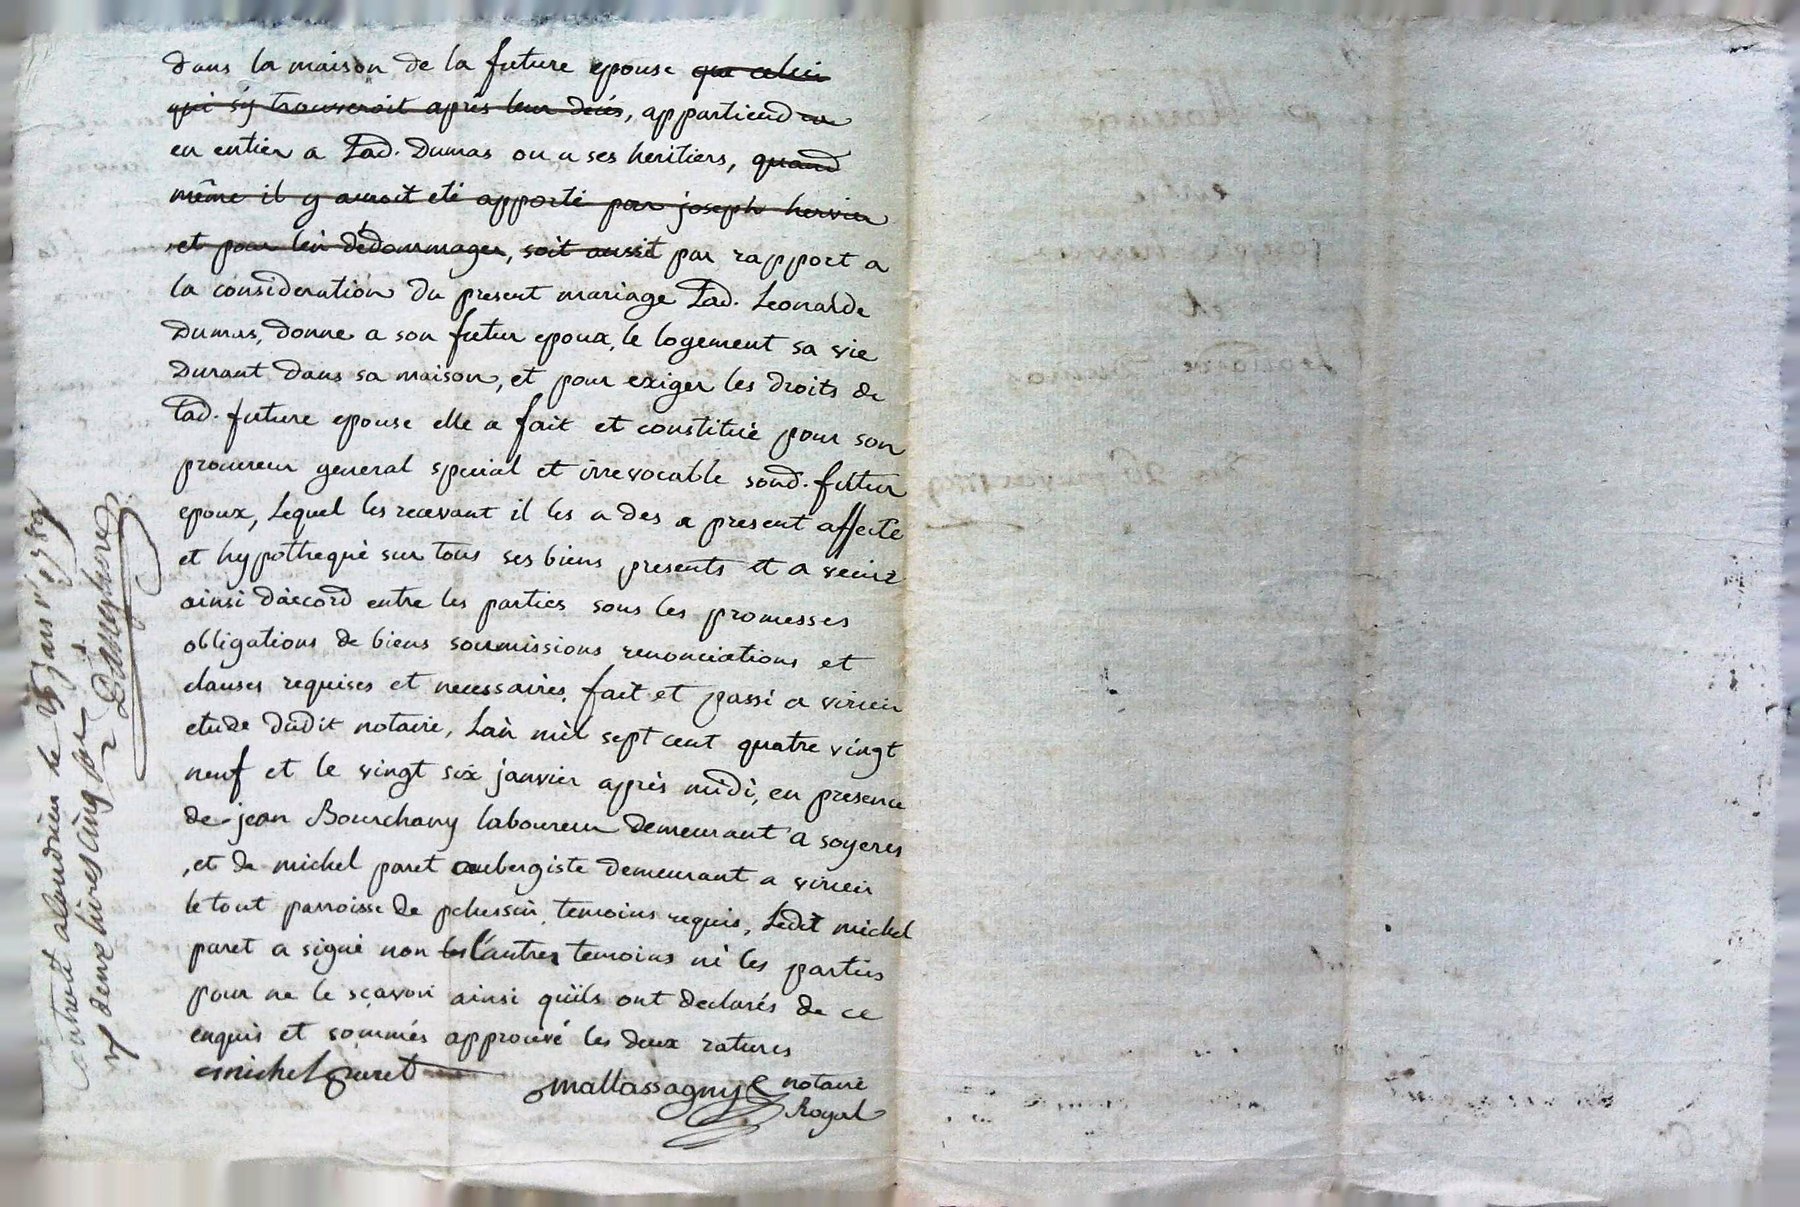 dans la maison de la future epouse que celui
qui s'y trouveroit après leur decés, appartiendra
en entier a Lad. Dumas ou a ses heritiers, quand
même il y auroit eté apporté par joseph hervier
et pour l'en dédommager, soit aussit par rapport a
la consideration du present mariage Lad. Leonarde
Dumas, donne a son futur epoux, le logement sa vie
Durant dans sa maison, et pour exiger les droits de
Lad. future epouse elle a fait et constitué pour son
procureur general special et irrevocable sond. futur
epoux, Lequel les recevant il les a des a present affecté
et hypothequé sur tous ses biens presents et a venir
ainsi d'accord entre les parties sous les promesses
obligations de biens soumissions renonciations et
clauses requises et necessaires, fait et passé a virieu
etude dudit notaire, L'an mil sept cent quatre vingt
neuf et le vingt six janvier après midi, en presence
de jean Bourchany laboureur demeurant a soyeres
, et de michel paret aubergiste demeurant a virieu
le tout parroisse de pelussin, temoins requis, Ledit michel
paret a signé non les l'autres temoins ni les parties
pour ne le sçavoir ainsi qu'ils ont declarés de ce
enquis et sommés approuvé les deux ratures
michel paret
Mallassagny notaire
Royal
Controlé a le 25 janv. 1789
deux livres cinq sols
entre
joseph hervier
et
Leonarde Dumas
Du 26 janvier 1789